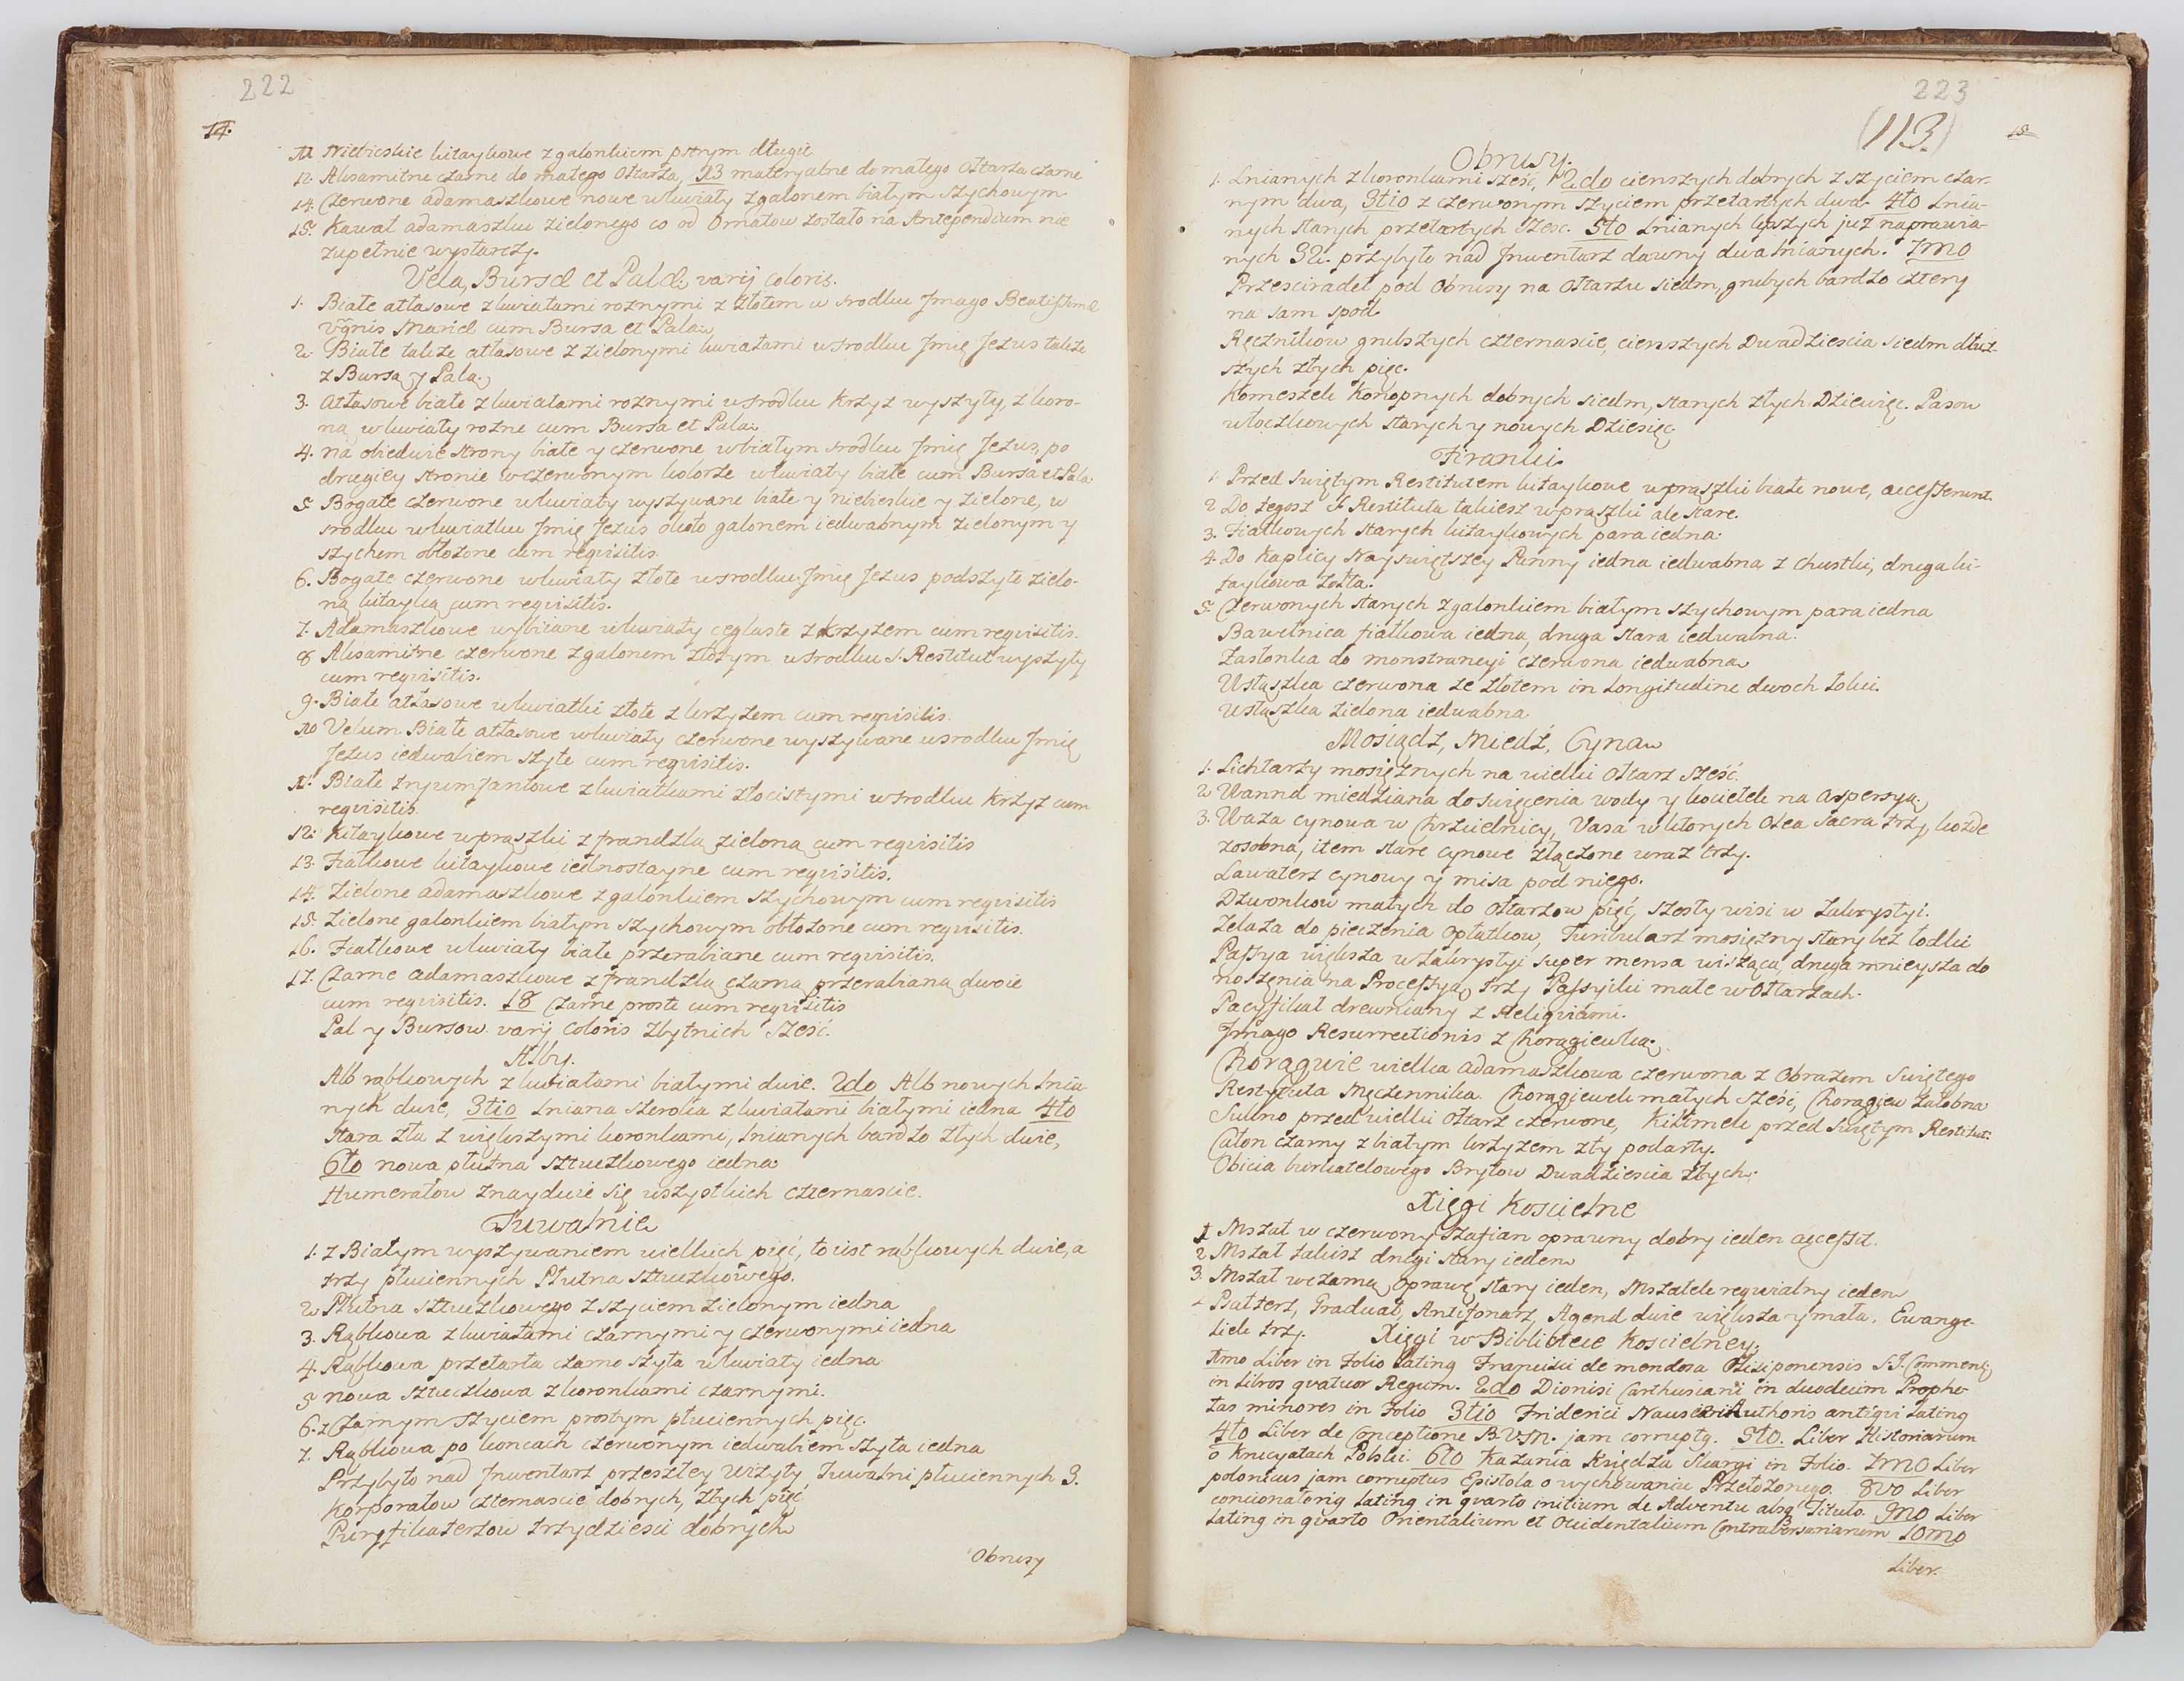 222
14.
11 Niebieskie kitaykowe z galonkiem pstrym długie
12. Aksamitne czarne do małego Ołtarza, 13 materyalne do małego Ołtarza czarne
14. Czerwone adamaszkowe nowe w kwiaty z galonem białym szychowym
15. Kawał adamaszku zielonego co od Ornatow zostało na Antependium nie
zupełnie wystarczy.
Vela, Bursæ et Palæ, varij coloris.
1. Białe atłasowe z kwiatami roznymi z złotem w srodku Jmago Beatissimæ
Vgnis Mariæ cum Bursa et Pala
2. Białe także atłasowe z zielonymi kwiatami w srodku Jmię Jezus także
z Bursą y Palą.
3. Atłasowe białe z kwiatami roznymi w srodku Krzyz wyszyty, z koro-
ną w kwiaty rozne cum Bursa et Pala
4. na obiedwie strony białe y czerwone w białym srodku Jmię Jezus, po
drugiey stronie w czerwonym kolorze w kwiaty białe cum Bursa et Pala.
5 Bogate czerwone w kwiaty wyszywane białe y niebieskie y zielone, w
srodku w kwiatku Jmię Jezus około galonem iedwabnym zielonym y
szychem obłozone cum reqvisitis.
6. Bogate czerwone w kwiaty złote w srodku Jmię Jezus podszyte zielo-
ną kitayką cum reqvisitis.
7. Adamaszkowe wybiiane w kwiaty ceglaste z krzyzem cum reqvisitis.
8 Aksamitne czerwone z galonem złotym w srodku S. Restitut wyszyty
cum reqvisitis.
9. Białe atłasowe w kwiatki złote z krzyzem cum reqvisitis.
10 Velum Białe atłasowe w kwiaty czerwone wyszywane w srodku Jmię
Jezus iedwabiem szyte cum reqvisitis.
11. Białe tryumfantowe z kwiatkami złocistymi w srodku Krzyz cum
reqvisitis.
12. Kitaykowe w prązki z frandzlą zieloną cum reqvisitis
13. Fiałkowe kitaykowe iednostayne cum reqvisitis.
14. Zielone adamaszkowe z galonkiem szychowym cum reqvisitis
15. Zielone galonkiem białym szychowym obłozone cum reqvisitis.
16. Fiałkowe w kwiaty białe przerabiane cum reqvisitis.
17. Czarne adamaszkowe z frandzlą czarną przerabianą dwoie
cum reqvisitis. 18 Czarne proste cum reqvisitis
Pal y Bursow varij coloris zbytnich szesć.
Alby.
Alb rąbkowych z kwiatami białymi dwie. 2do Alb nowych lnia-
nych dwie, 3tio Lniana szeroka z kwiatami białymi iedna 4to
stara zła z większymi koronkami, lnianych bardzo złych dwie,
6to nowa płutna sztuczkowego iedna
Humerałow znayduie się wszystkich czternascie.
Tuwalnie
1. z Białym wyszywaniem wielkich pięć, to iest rąbkowych dwie, a
trzy płuciennych Płutna sztuczkowego.
2 Płutna sztuczkowego z szyciem zielonym iedna
3. Rąbkowa z kwiatami czarnymi y czerwonymi iedna
4. Rąbkowa przetarta czarno szyta w kwiaty iedna
5 nowa sztuczkowa z koronkami czarnymi.
6. z Czarnym szyciem prostym płuciennych pięć.
7. Rąbkowa po koncach czerwonym iedwabiem szyta iedna
Przybyło nad Jnwentarz przeszłey Wizyty Tuwalni płuciennych 3.
Korporałow czternascie dobrych, złych pięć
Puryfikaterzow trzydziesci dobrych
Obrusy
223
(113.)
15
Obrusy.
1. Lnianych z koronkami szesć, 2do cienszych dobrych z szyciem czar-
nym dwa, 3tio z czerwonym szyciem przetartych dwa 4to Lnia-
nych starych przetartych szesc. 5to Lnianych lepszych już naprawia-
nych 32. przybyło nad Jnwentarz dawny dwa lnianych. 7mo
Przescieradeł pod Obrusy na Ołtarzu siedm, grubych bardzo cztery
na sam spod.
Ręcznikow grubszych czternascie, cienszych Dwadziescia siedm dłuż-
szych złych pięć.
Komeszek Konopnych dobrych siedm, starych złych Dziewięc. Pasow
włoczkowych starych y nowych Dziesięc
Firanki
1. Przed Swiętym Restitutem kitaykowe w prązki białe nowe, accesserunt.
2 Do tegosz S Restituta takiesz w prązki ale stare.
3. Fiałkowych starych kitaykowych para iedna.
4. Do Kaplicy Nayswiętszey Panny iedna iedwabna z chustki, druga ki-
taykowa żołta.
5. Czerwonych starych z galonkiem białym szychowym para iedna
Bawełnica fiałkowa iedna, druga stara iedwabna.
Zasłonka do monstrancyi czerwona iedwabna
Wstązka czerwona ze złotem in longitudine dwoch łokci.
Wstązka zielona iedwabna
Mosiądz, Miedź, Cyna
1. Lichtarzy mosiężnych na wielki Ołtarz szesć.
2 Wanna miedziana do swięcenia wody y kociełek na Aspersyą
3. Waza cynowa w Chrzcielnicy, Vasa w ktorych Olea Sacra trzy, kożde
zosobna, item stare cynowe złączone wraz trzy.
Lawaterz cynowy y misa pod niego.
Dzwonkow małych do Ołtarzow pięć, szosty wisi w Zakrystyi.
Zelaza do pieczenia opłatkow, Turibularz mosiężny stary bez łodki
Passya większa w Zakrystyi super mensa wisząca, druga mnieysza do
noszenia na Processyą, trzy Passyiki małe w Ołtarzach.
Pacyfikał drewniany z Reliqviami.
Jmago Resurrectionis z Chorągiewką.
Chorągwie wielka adamaszkowa czerwona z Obrazem Swiętego
Restytuta Męczennika. Chorągiewek małych szesć, Chorągiew żałobna
Sukno przed wielki Ołtarz czerwone, Kiltmek przed Swiętym Restitut.
Całon czarny z białym krzyzem zły podarty.
Obicia burkatelowego Brytow Dwadziescia złych.
Xięgi Koscielne
1 Mszał w czerwony Szafian oprawny dobry ieden accessit.
2 Mszał takisz drugi stary ieden
3. Mszał w czarną Oprawę stary ieden, Mszałek reqwialny ieden
Psałterz, Graduał, Antifonarz, Agend dwie większa y mała, Ewange-
liek trzy. Xięgi w Bibliotece Koscielney.
1mo Liber in Folio Lating Francisci de mendosa Olisiponensis S.J. Comment
in Libros qvatuor Regum. 2do Dionisi Carthusiani in duodecim Prophe-
tas minores in Folio 3tio Friderici Nausea Authoris antiqvi Lating
4to Liber de Conceptione B.V.M. jam corruptg. 5to. Liber Historiarum
o Krucyatach Polski. 6to Kazania Księdza Skargi in Folio. 7mo Liber
polonicus jam corruptus Epistola o wychowaniu Przełożonego. 8vo Liber
concionatorig Lating in qvarto initium de Adventu absq Titulo. 9no Liber
Lating in qvarto Orientalium et Occidentalium Contraversariarum 10mo
Liber.